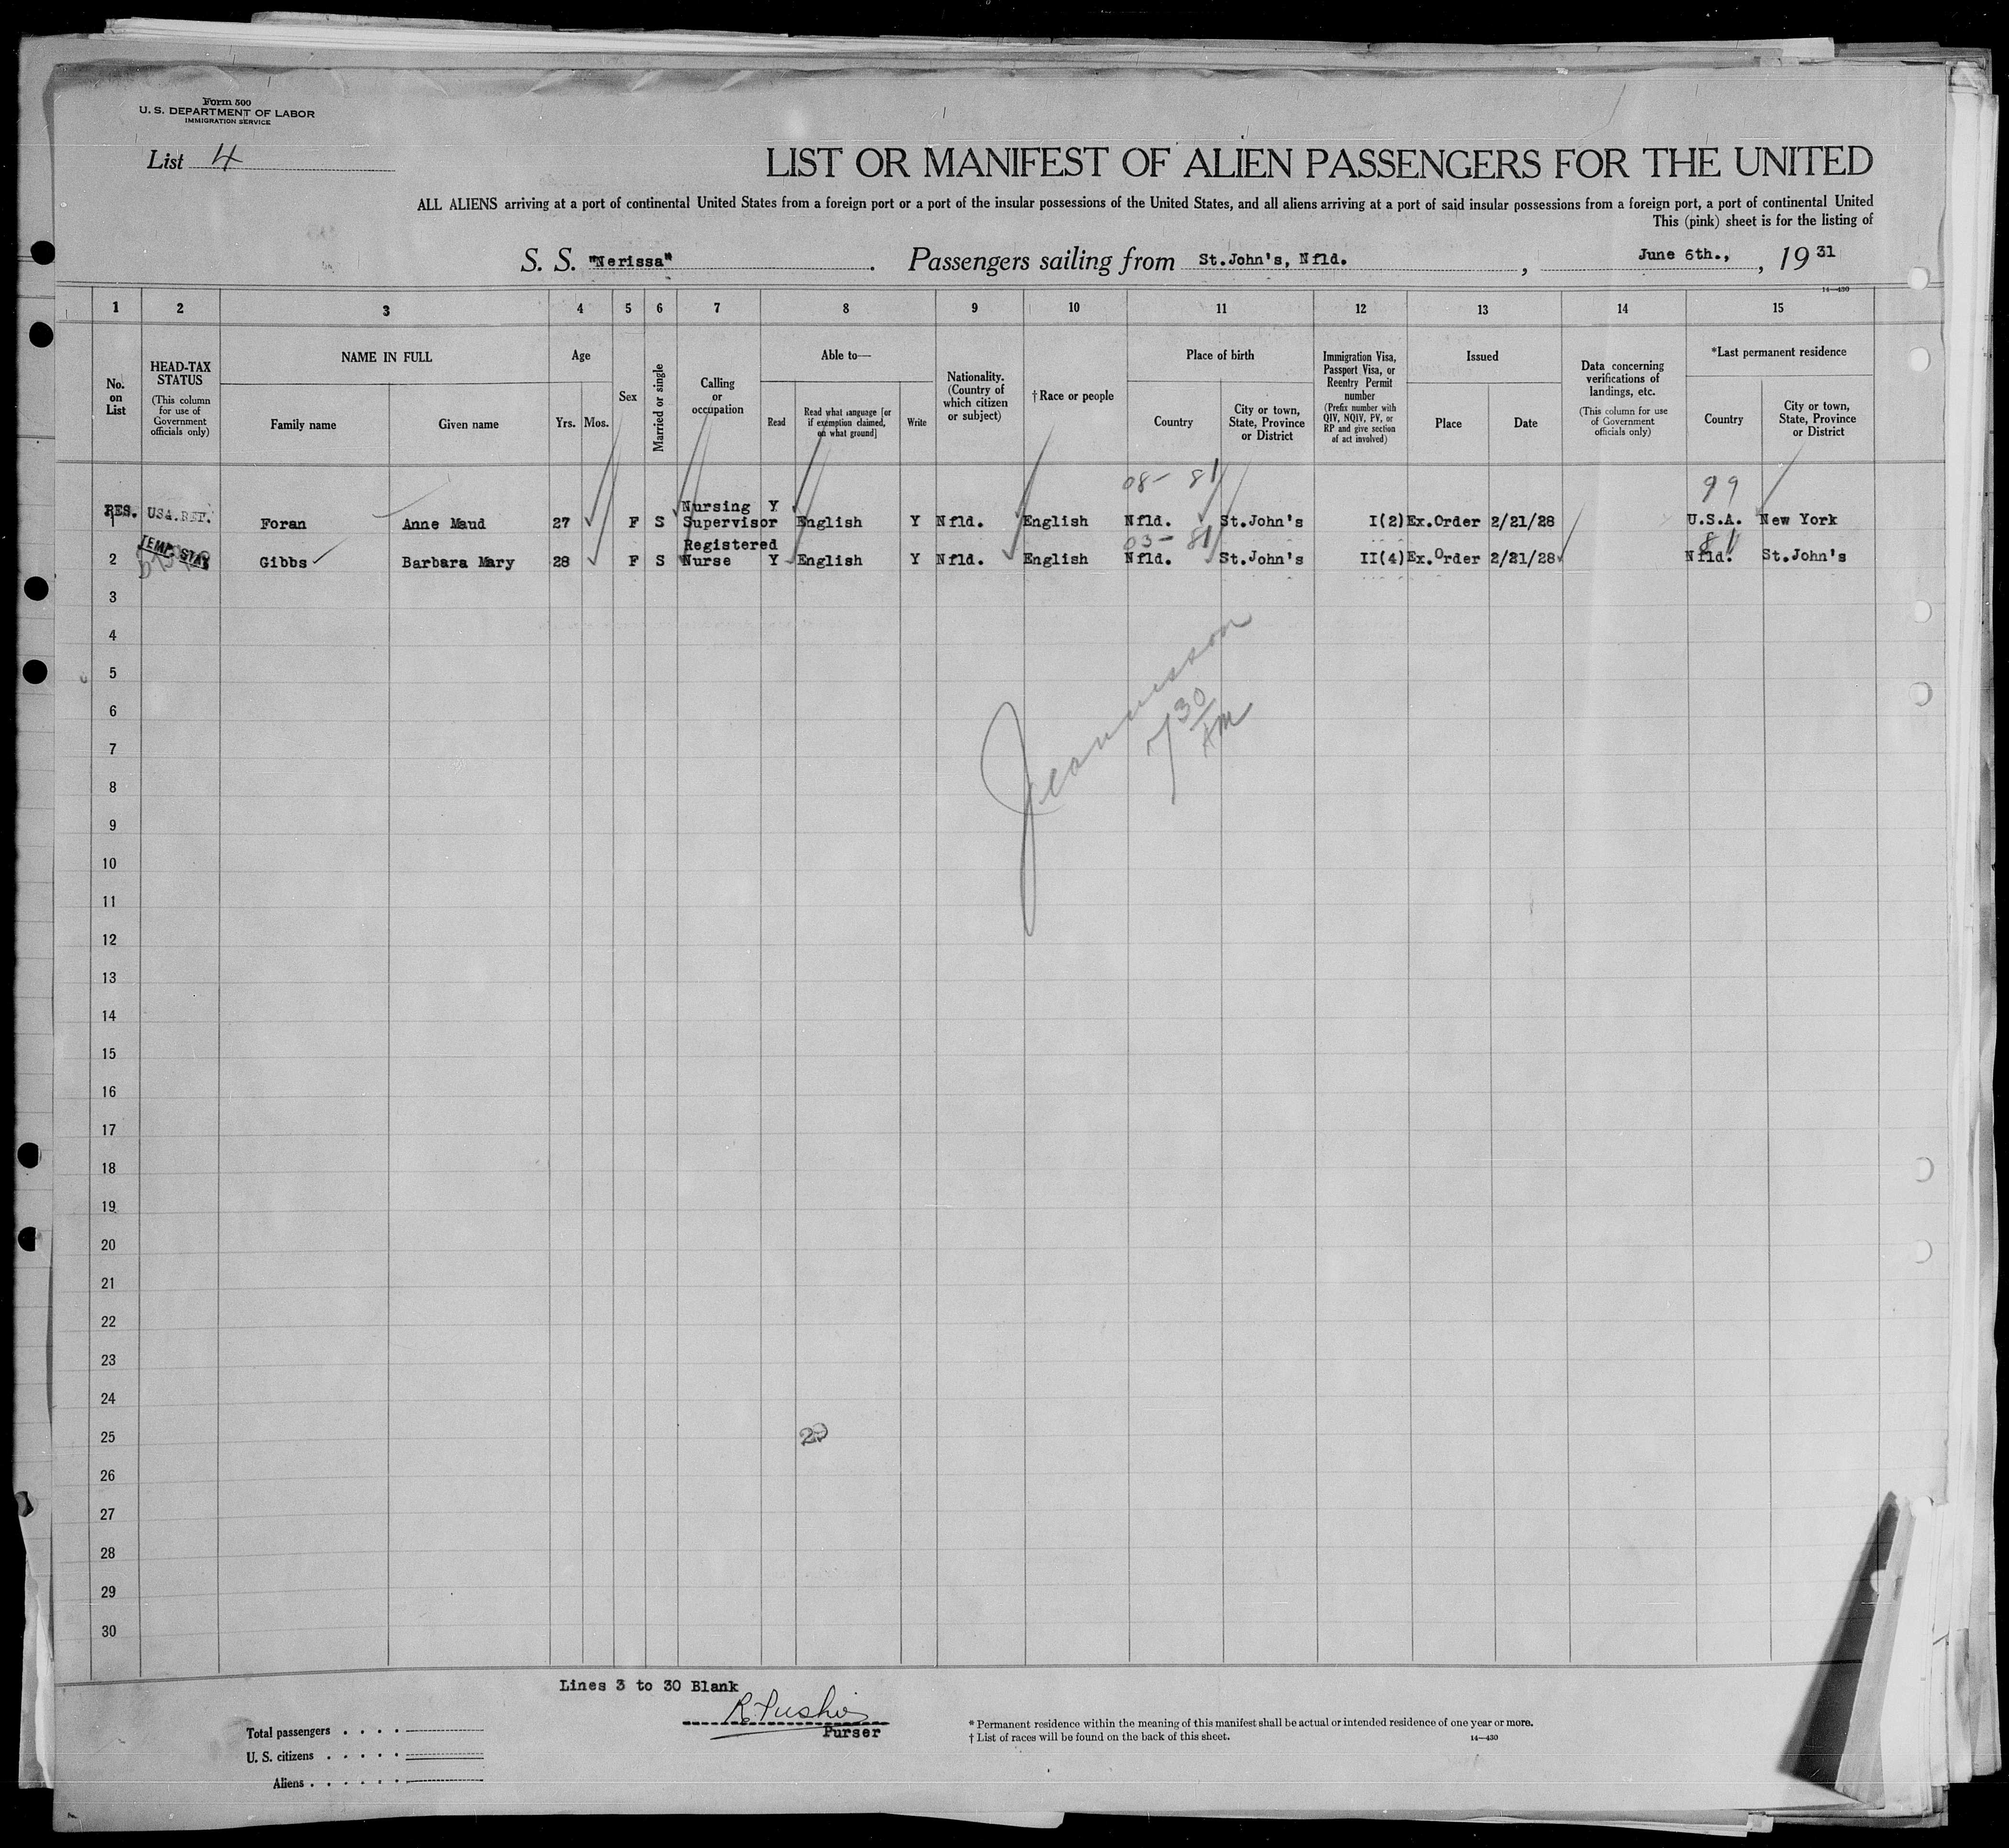 Form 500
U. S. DEPARTMENT OF LABOR
IMMIGRATION SERVICE
List 4
LIST OR MANIFEST OF ALIEN PASSENGERS FOR THE UNITED
ALL ALIENS arriving at a port of continental United States from a foreign port or a port of the insular possessions of the United States, and all aliens arriving at a port of said insular possessions from a foreign port, a port of continental United
This (pink) sheet is for the listing of
S. S. "Nerissa". Passengers sailing from St.John's, Nfld., June 6th., , 19 31
14—430
1 2 3 4 5 6 7 8 9 10 11 12 13 14 15
No. on List
HEAD-TAX STATUS
(This column for use of Government officials only)
NAME IN FULL
Family name Given name
Age
Yrs. Mos.
Sex
Married or single
Calling or occupation
Able to—
Read
Read what language [or if exemption claimed, on what ground]
Write
Nationality. (Country of which citizen or subject)
† Race or people
Place of birth
Country
City or town, State, Province or District
Immigration Visa, Passport Visa, or Reentry Permit number
(Prefix number with QIV, NQIV, PV, or RP and give section of act involved)
Issued
Place Date
Data concerning verifications of landings, etc.
(This column for use of Government officials only)
*Last permanent residence
Country
City or town, State, Province or District
08- 81 99
RES. USA. Foran Anne Maud 27 F S Nursing Supervisor Y English Y Nfld. English Nfld. St.John's I(2) Ex.Order 2/21/28 U.S.A. New York
03- 81 81
2 TEMP. STAY Gibbs Barbara Mary 28 F S Registered Nurse Y English Y Nfld. English Nfld. St.John's II(4) Ex.Order 2/21/28 Nfld. St.John's
3
4
5
6
7
8
9
10
11
12
13
14
15
16
17
18
19
20
21
22
23
24
25
26
27
28
29
30
7 30 AM
Lines 3 to 30 Blank
Purser
Total passengers . . . .
U. S. citizens . . . . .
Aliens . . . . . .
* Permanent residence within the meaning of this manifest shall be actual or intended residence of one year or more.
† List of races will be found on the back of this sheet.
14—430